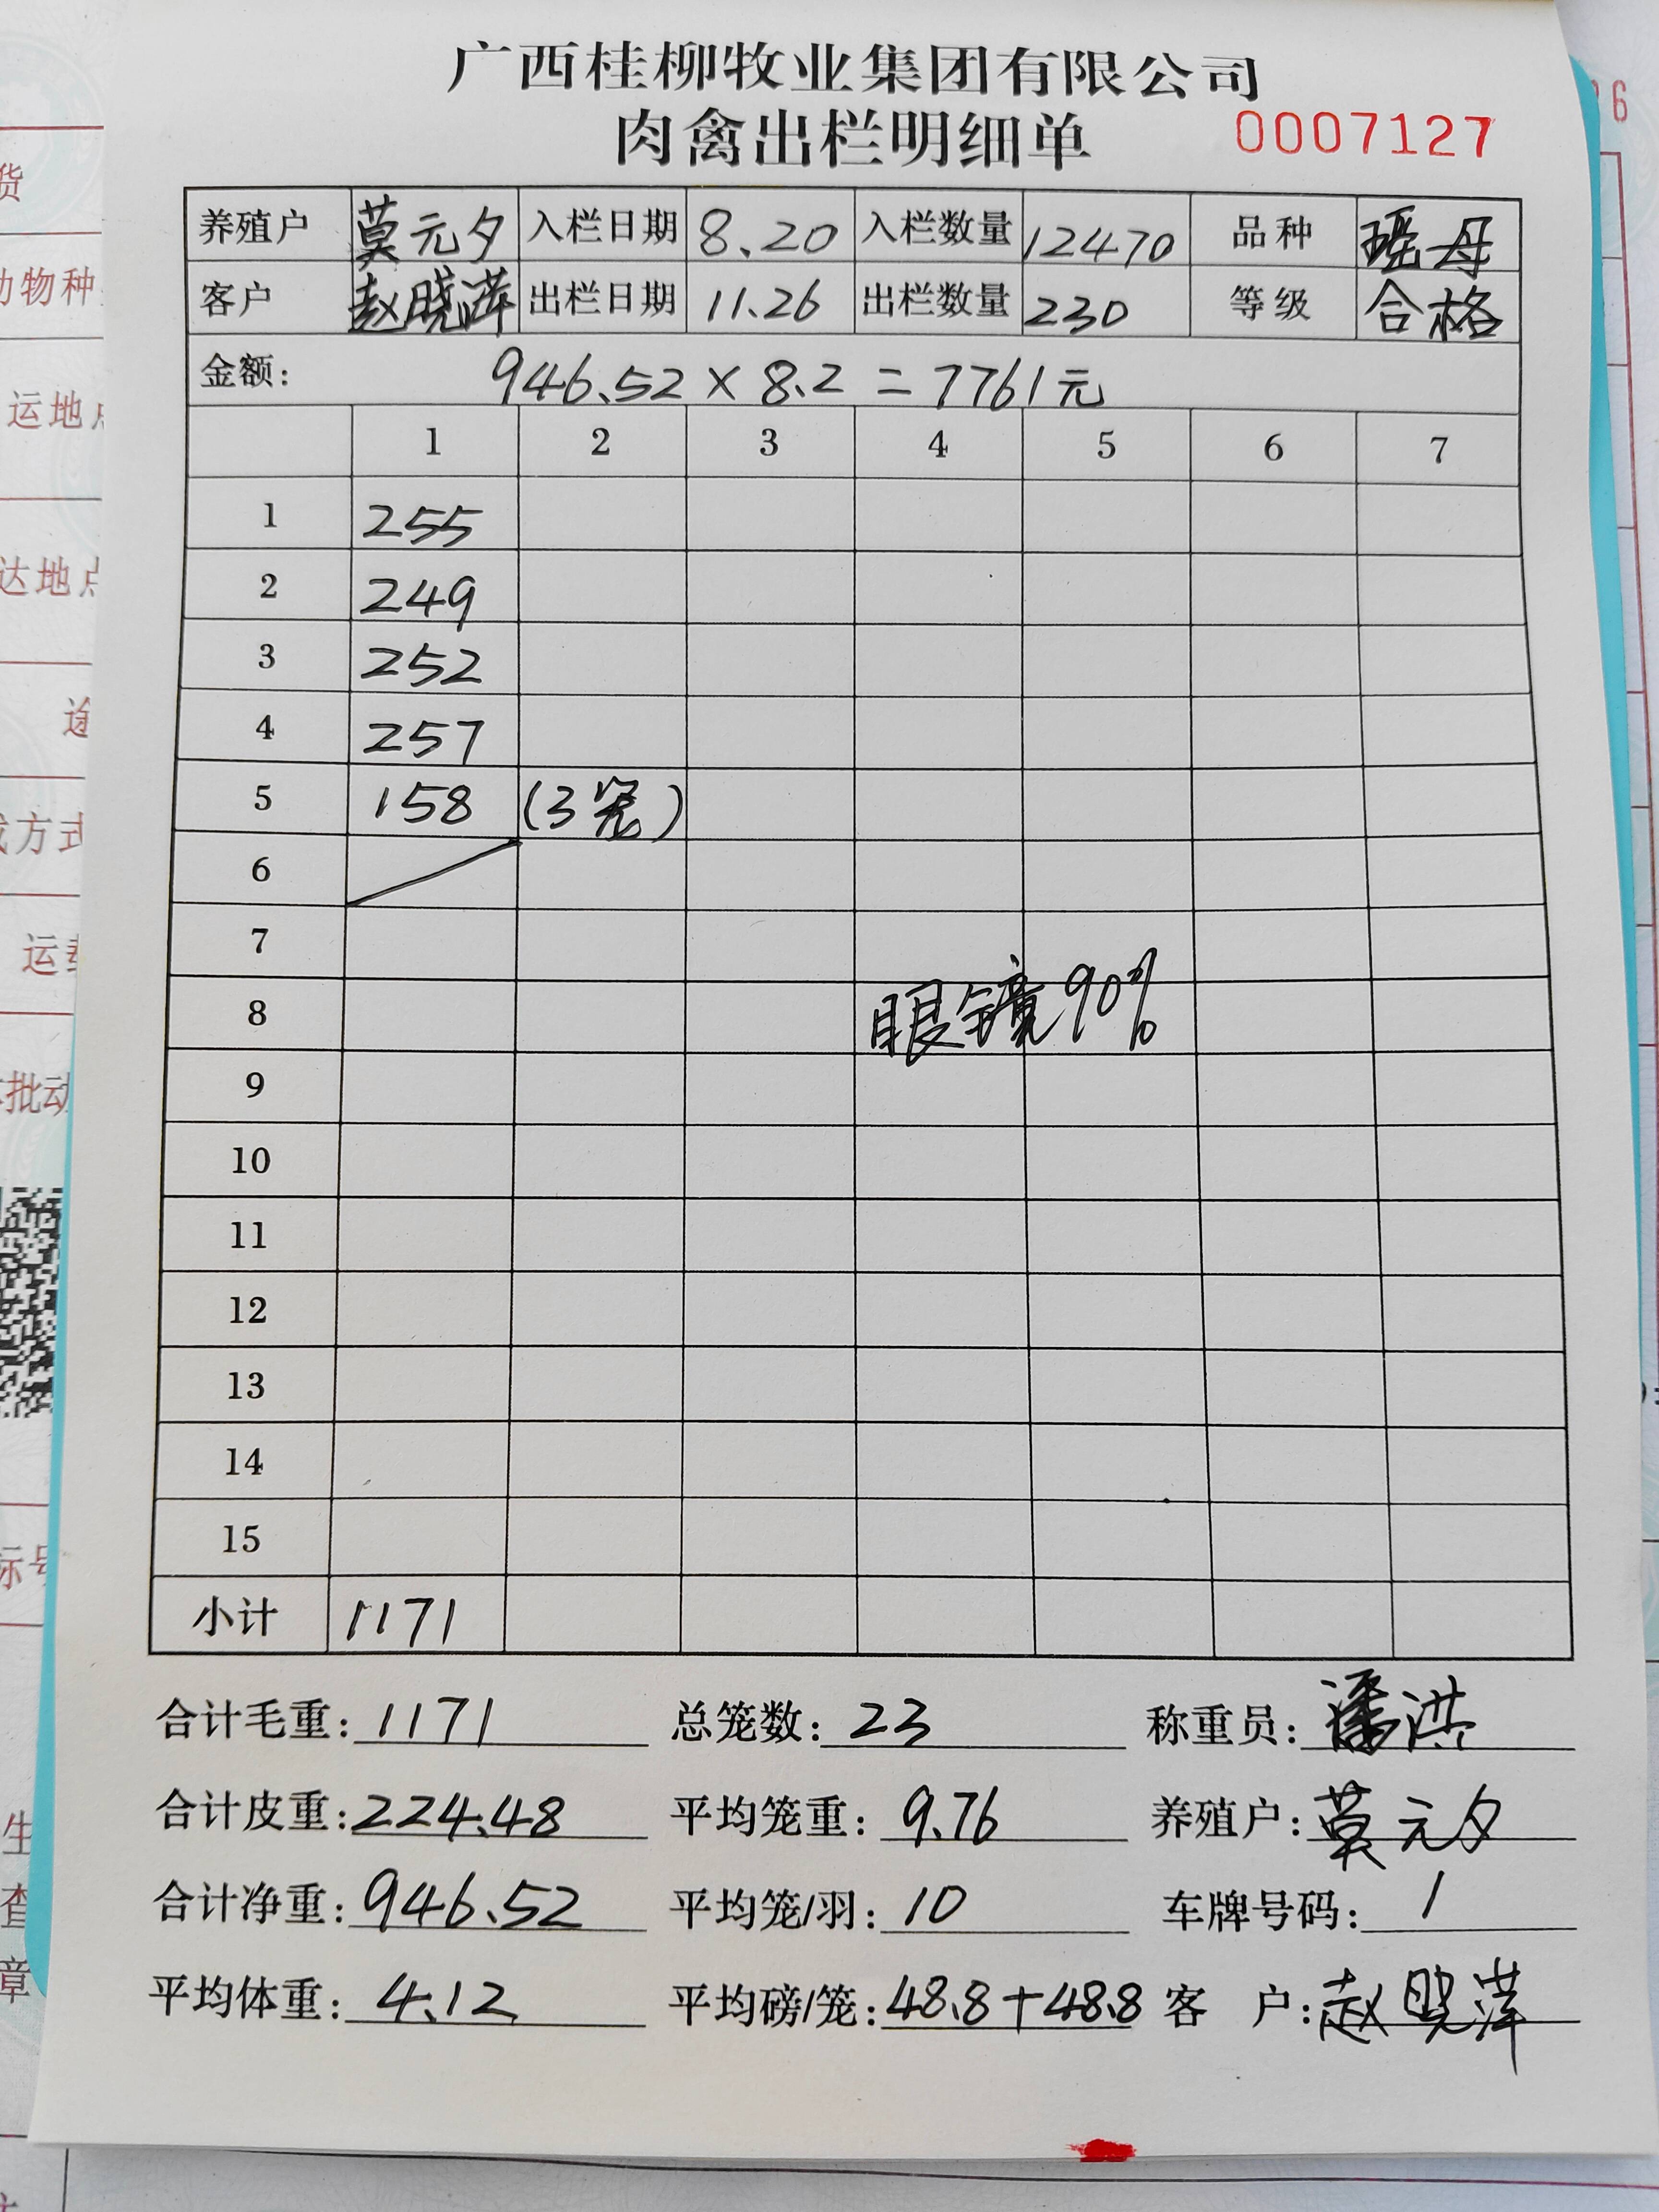 广西桂柳牧业集团有限公司
肉禽出栏明细单 0007127
养殖户 莫元夕 入栏日期 8.20 入栏数量 12470 品种 瑶母
客户 赵晓萍 出栏日期 11.26 出栏数量 230 等级 合格
金额: 946.52×8.2=7761元
1 2 3 4 5 6 7
1 255
2 249
3 252
4 257
5 158 (3笼)
6
7
8 眼镜90%
9
10
11
12
13
14
15
小计 1171
合计毛重: 1171 总笼数: 23 称重员: 潘洪
合计皮重: 224.48 平均笼重: 9.76 养殖户: 莫元夕
合计净重: 946.52 平均笼/羽: 10 车牌号码: 1
平均体重: 4.12 平均磅/笼: 48.8+48.8 客 户: 赵晓萍
货
动物种
运地点
达地点
运载
方式
批动
标号
生
查
章
6